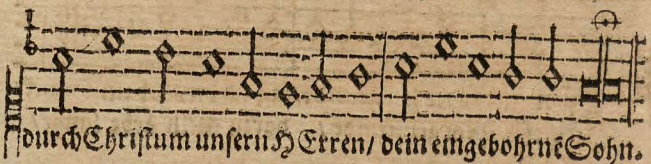 durch Christum unsern HErren/ dein eingebohrnẽ Sohn.